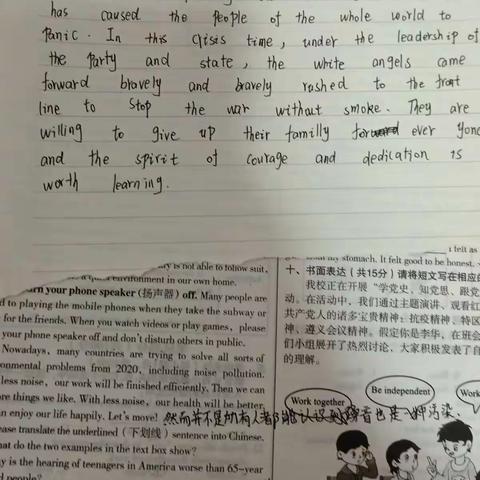 has caused the people of the whole world to
panic. In this crisis time, under the leadership of
the party and state, the white angels came
forward bravely and bravely rushed to the front
line to stop the war without smoke. They are
willing to give up their familly for ever
and the spirit of courage and dedication is
worth learning.
t felt as
my stomach. It felt good to be honest.
ry is not able to follow suit,
environment in our own home.
urn your phone speaker (扬声器) off. Many people are
d to playing the mobile phones when they take the subway or
for the friends. When you watch videos or play games, please
your phone speaker off and don't disturb others in public.
Nowadays, many countries are trying to solve all sorts of
onmental problems from 2020, including noise pollution.
less noise, our work will be finished efficiently. Then we can
ore things we like. With less noise, our health will be better,
an enjoy our life happily. Let's move!
然而并不是所有人都能认识到噪音也是一种污染.
ease translate the underlined (下划线) sentence into Chinese.
at do the two examples in the text box show?
y is the hearing of teenagers in America worse than 65-year
d people?
十、书面表达(共15分)请将短文写在相应的
我校正在开展“学党史、知党恩、跟党
动。在活动中,我们通过主题演讲、观看红
共产党人的诸多宝贵精神:抗疫精神、特区
神、遵义会议精神。假定你是李华,在班会
们小组展开了热烈讨论,大家积极发表了自
的理解。
Work together
Be independent
Work